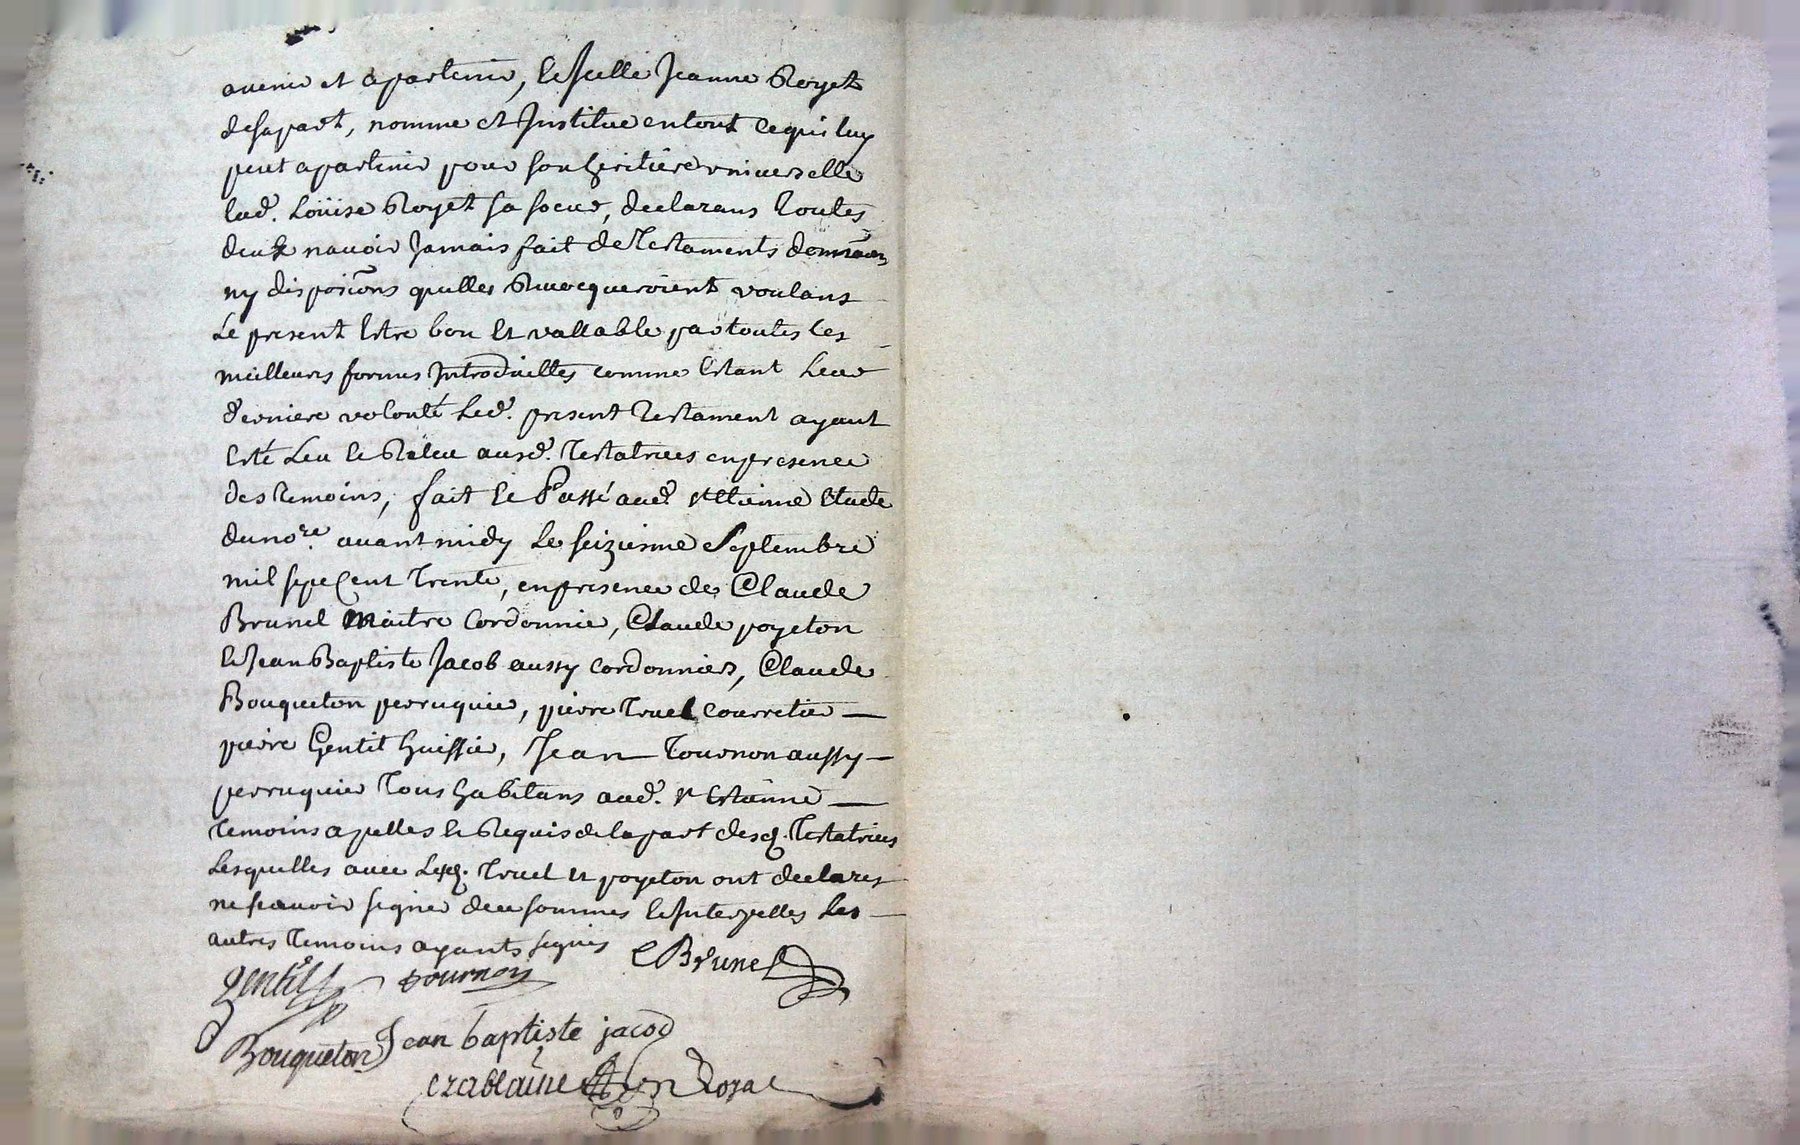 avenir et apartenir, Et Icelle Jeanne Royet
de sa part, nomme et Institue en tout ce qui luy
peut apartenir pour son heritiere universelle
lad. Loüise Royet sa soeur, declarans Toutes
deux navoir Jamais fait de Testaments
ny disposions quelles Revocqueroient voulans
Le present Estre bon Et vallable par toutes les
meilleurs formes Introduittes comme Estant Leur
derniere volonté Led. present Testament ayant
Esté Leu Et Releu ausd. Testatrices en presence
des temoins, fait Et Passé aud. st Etienne Etude
du nore. avant midy Le seiziesme Septembre
mil sept Cent Trente, en presence des Claude
Brunel Maitre Cordonnier, Claude poyeton
Et Jean Baptiste Jacob aussy Cordonniers, Claude
Bouqueton perruquier, pierre Truel Courretier
pierre Gentil huissier, Jean Tournon aussy
perruquier Tous habitans aud. st Estienne
Temoins apelles Et Requis de la part desd. Testatrices
Lesquelles avec Lesd. Truel Et poyeton ont declarés
ne scavoir signer de ce sommes Et Interpelles Les
autres Temoins ayants signés C Brunel
gentil tournon
Bouqueton Jean baptiste jacob